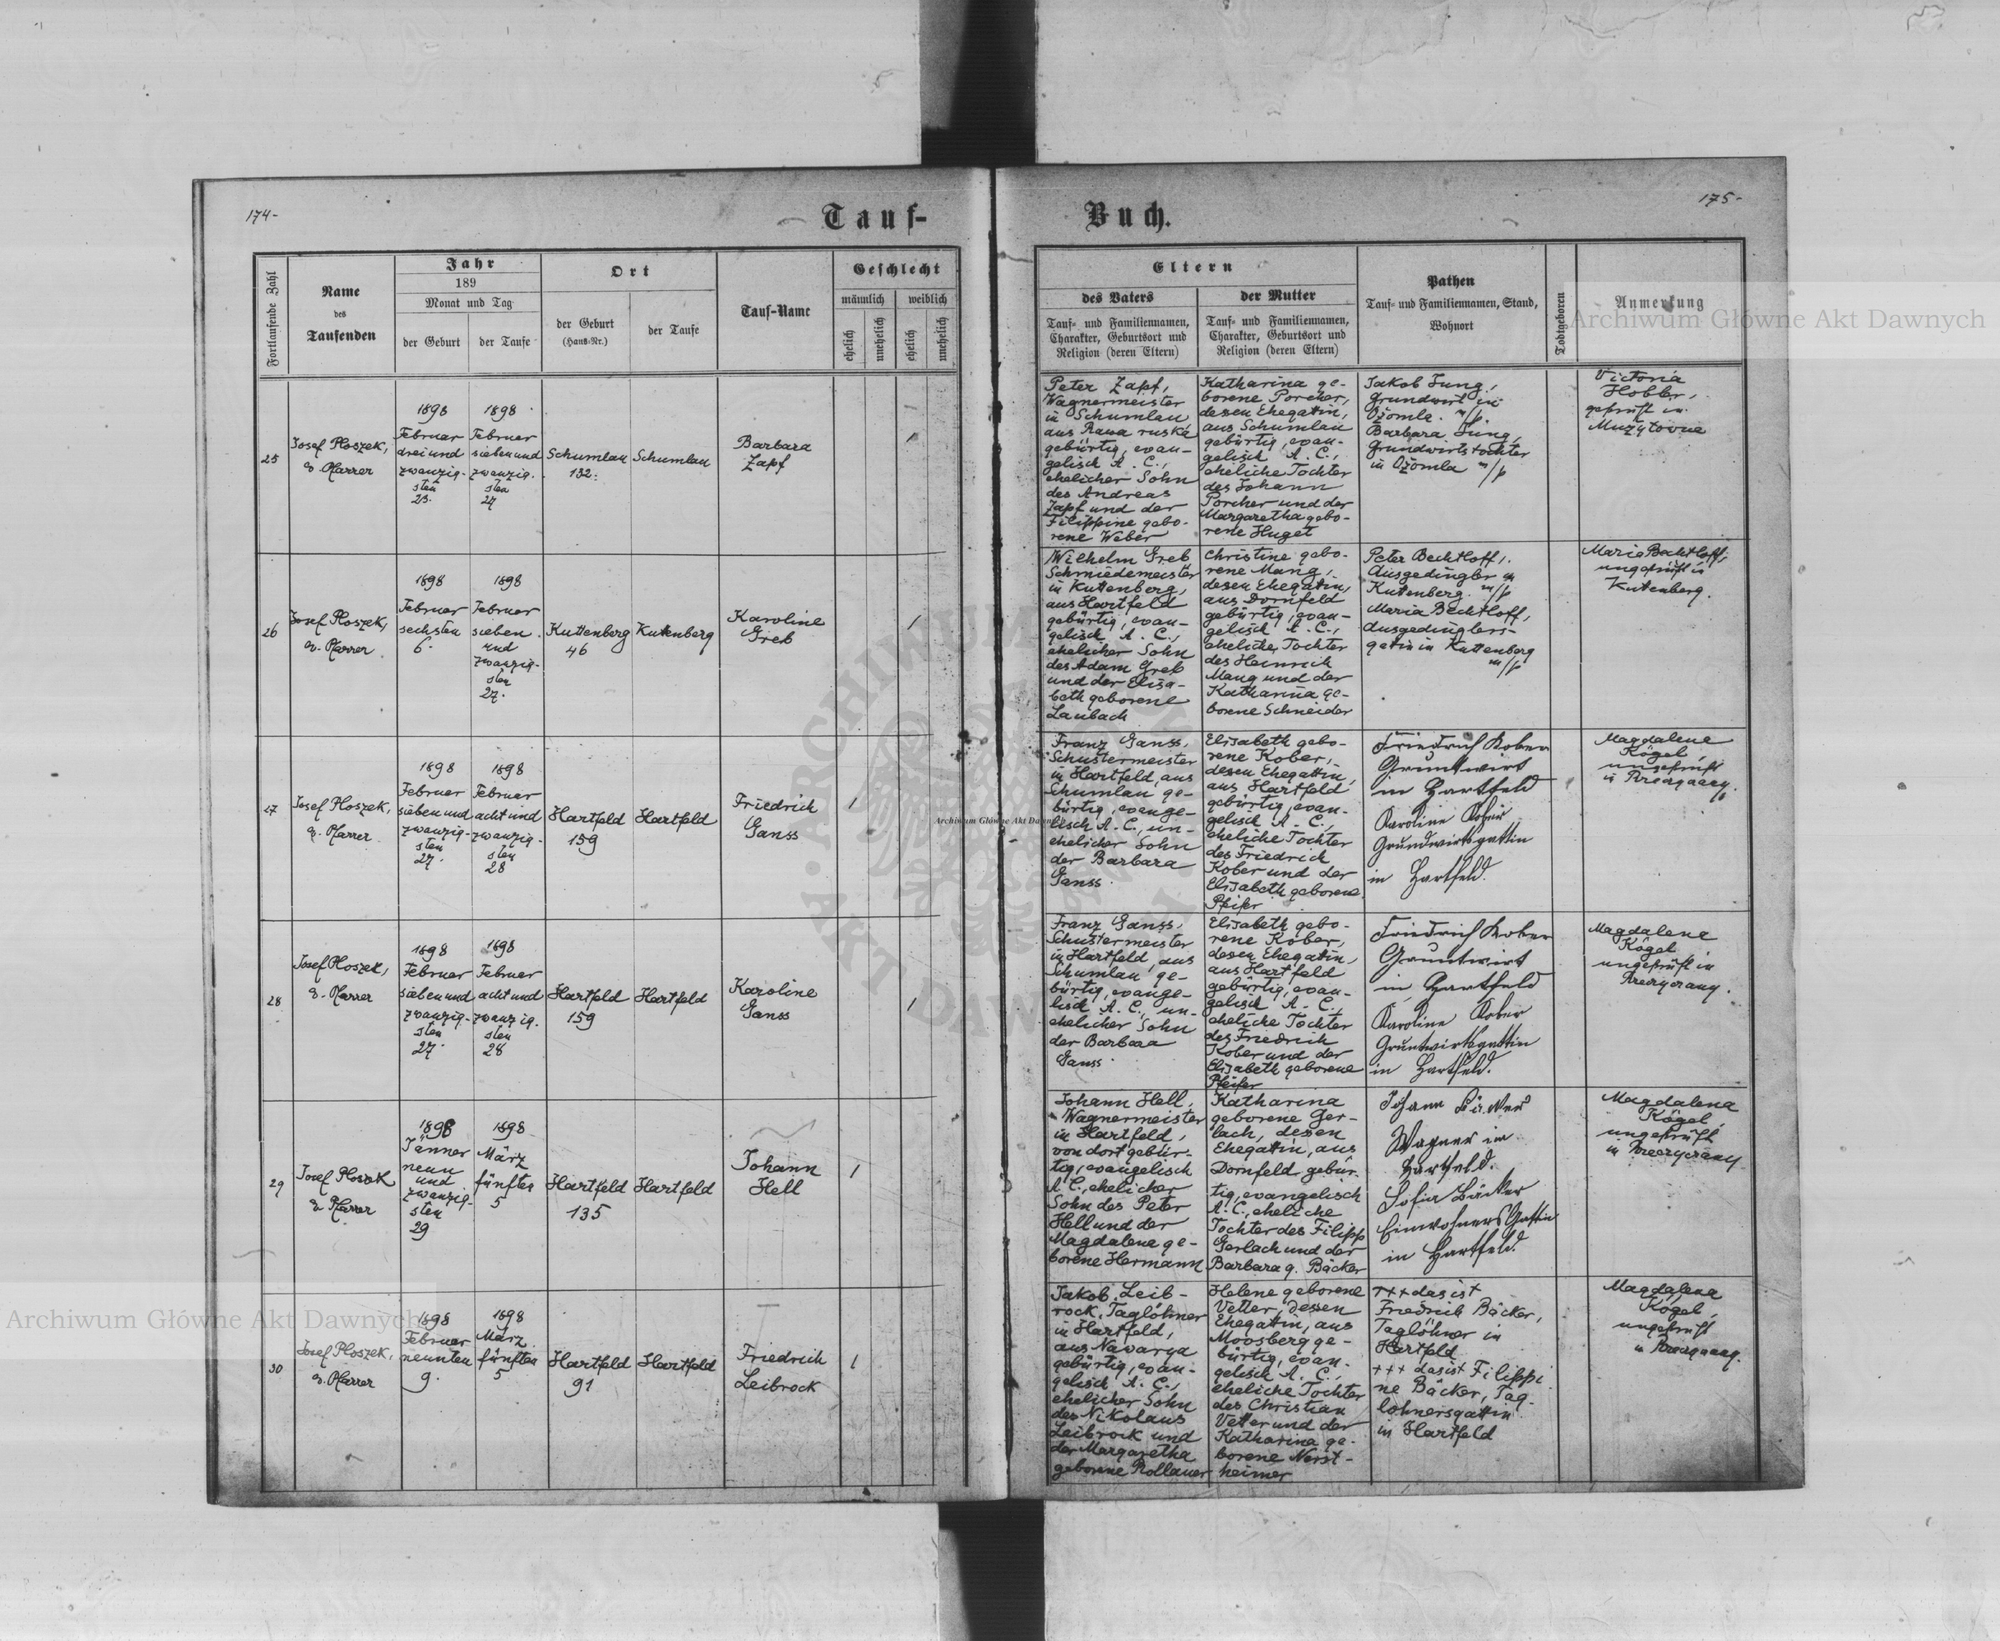 174-
Tauf-
Fortlaufende Zahl
Name
des
Taufenden
Jahr
189
Monat und Tag
der Geburt
der Taufe
Ort
der Geburt
(Haus-Nr.)
der Taufe
Tauf-Name
Geschlecht
männlich
weiblich
ehelich
unehelich
ehelich
unehelich
25
Josef Ploszek,
ev. Pfarrer
1898
Februar
drei und
zwanzig-
sten
23.
1898
Februar
sieben und
zwanzig-
sten
27
Schumlau
132.
Schumlau
Barbara
Zapf
1
26
Josef Ploszek,
ev. Pfarrer
1898
Februar
sechsten
6.
1898
Februar
sieben
und
zwanzig-
sten
27.
Kuttenberg
46
Kuttenberg
Karoline
Greb
1
27
Josef Ploszek,
ev. Pfarrer
1898
Februar
sieben und
zwanzig-
sten
27.
1898
Februar
acht und
zwanzig-
sten
28
Hartfeld
159
Hartfeld
Friedrich
Ganss
1
28
Josef Ploszek,
ev. Pfarrer
1898
Februar
sieben und
zwanzig-
sten
27.
1898
Februar
acht und
zwanzig-
sten
28
Hartfeld
159
Hartfeld
Karoline
Ganss
1
29
Josef Ploszek
ev. Pfarrer
1898
Jänner
neun
und
zwanzig-
sten
29
1898
März
fünften
5
Hartfeld
135
Hartfeld
Johann
Hell
1
30
Josef Ploszek,
ev. Pfarrer
1898
Februar
neunten
9.
1898
März
fünften
5
Hartfeld
91
Hartfeld
Friedrich
Leibrock
1
175-
Buch.
Eltern
des Vaters
Tauf- und Familiennamen,
Charakter, Geburtsort und
Religion (deren Eltern)
der Mutter
Tauf- und Familiennamen,
Charakter, Geburtsort und
Religion (deren Eltern)
Pathen
Tauf- und Familiennamen, Stand,
Wohnort
Todtgeboren
Anmerkung
Peter Zapf,
Wagnermeister
in Schumlau
aus Rawa ruska
gebürtig, evan-
gelisch A. C.,
ehelicher Sohn
des Andreas
Zapf und der
Filippine gebo-
rene Weber
Katharina ge-
borene Porcher,
dessen Ehegattin,
aus Schumlau
gebürtig, evan-
gelisch A. C.,
eheliche Tochter
des Johann
Porcher und der
Margaretha gebo-
rene Huget
Jakob Jung,
Grundwirt in
Ożomla. m/p
Barbara Jung,
Grundwirtstochter
in Ożomla m/p
Victoria
Hobler,
geprüft in
Wilhelm Greb
Schmiedemeister
in Kuttenberg,
aus Hartfeld
gebürtig, evan-
gelisch A. C.,
ehelicher Sohn
des Adam Greb
und der Elisa-
beth geborene
Laubach
Christine gebo-
rene Mang,
dessen Ehegattin,
aus Dornfeld
gebürtig, evan-
gelisch A. C.,
eheliche Tochter
des Heinrich
Mang und der
Katharina ge-
borene Schneider
Peter Bechtloff,
Ausgedingler in
Kuttenberg. m/p
Maria Bechtloff,
Ausgedinglers-
gatin in Kuttenberg
m/p
Maria Bechtloff,
ungeprüft in
Kuttenberg.
Franz Ganss,
Schustermeister
in Hartfeld, aus
Schumlau ge-
bürtig, evange-
lisch A. C., un-
ehelicher Sohn
der Barbara
Ganss.
Elisabeth gebo-
rene Kober,
dessen Ehegattin,
aus Hartfeld
gebürtig, evan-
gelisch A. C.,
eheliche Tochter
des Friedrich
Kober und der
Elisabeth geborene
Pfeifer
Friedrich Kober
Gruntwirt
in Hartfeld
Karoline Kober
Grundwirtsgattin
in Hartfeld.
Magdalene
Kögel
ungeprüft
in
Franz Ganss,
Schustermeister
in Hartfeld, aus
Schumlau ge-
bürtig, evange-
lisch A. C., un-
ehelicher Sohn
der Barbara
Ganss.
Elisabeth gebo-
rene Kober,
dessen Ehegattin,
aus Hartfeld
gebürtig, evan-
gelisch A. C.,
eheliche Tochter
des Friedrich
Kober und der
Elisabeth geborene
Pfeifer
Friedrich Kober
Gruntwirt
in Hartfeld
Karoline Kober
Gruntwirtsgattin
in Hartfeld.
Magdalene
Kögel
ungeprüft in
Johann Hell,
Wagnermeister
in Hartfeld,
von dort gebür-
tig, evangelisch
A. C., ehelicher
Sohn des Peter
Hell und der
Magdalene ge-
borene Hermann
Katharina
geborene Ger-
lach, dessen
Ehegattin, aus
Dornfeld gebür-
tig, evangelisch
A. C., eheliche
Tochter des Filipp
Gerlach und der
Barbara g. Bäcker
Johann
Wagner in
Hartfeld.
Sofia Bäcker
Einwohners Gattin
in Hartfeld
Magdalena
Kögel,
ungeprüft
in
Jakob Leib-
rock, Taglöhner
in Hartfeld,
aus Nawarya
gebürtig, evan-
gelisch A. C.,
ehelicher Sohn
des Nikolaus
Leibrock und
der Margaretha
geborene Rollauer
Helene geborene
Vetter, dessen
Ehegattin, aus
Moosberg ge-
bürtig, evan-
gelisch A. C.,
eheliche Tochter
des Christian
Vetter und der
Katharina ge-
borene Nerst-
heimer
+++ das ist
Friedrich Bäcker,
Taglöhner in
Hartfeld
+++ das ist Filippi
ne Bäcker, Tag-
löhnersgattin
in Hartfeld
Magdalena
Kögel,
ungeprüft
in
Archiwum Główne Akt Dawnych
Archiwum Główne Akt Dawnych
Archiwum Główne Akt Dawnych